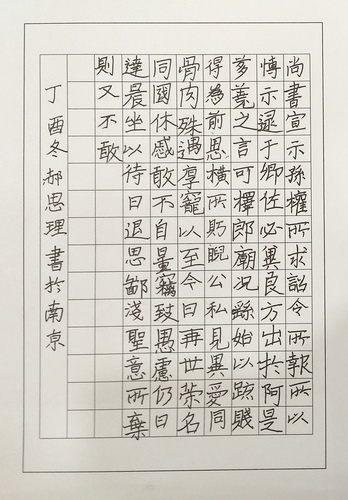 尚書宣示孫權所求詔令所報所以
博示逮于卿佐必冀良方出於阿是
芻蕘之言可擇郎廟況繇始以疏賤
得為前恩橫所眄睨公私見異愛同
骨肉殊遇享寵以至今日再世榮名
同國休慼敢不自量竊致愚慮仍日
達晨坐以待日退思鄙淺聖意所棄
則又不敢
丁酉冬郝思理書於南京